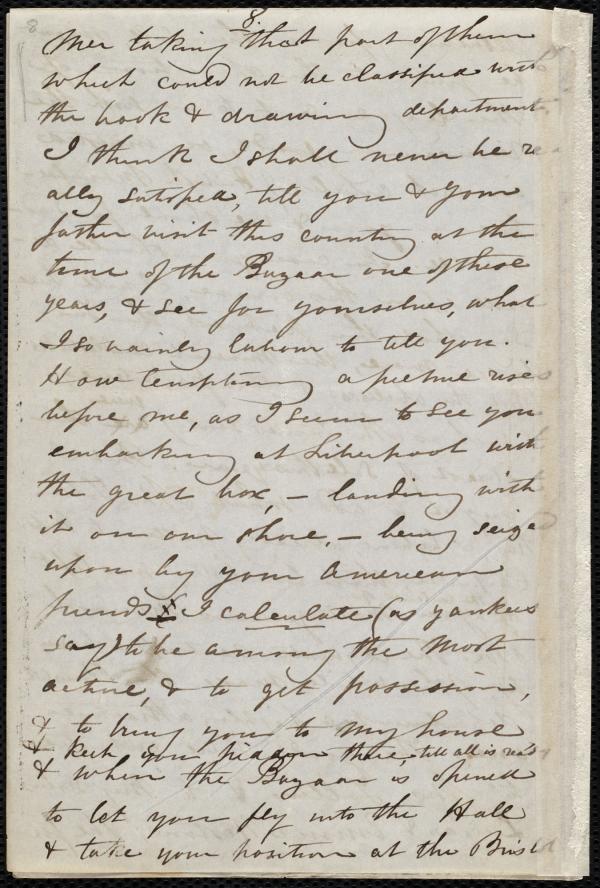 8
8.
Mer taking that part of them
which could not be classified with
the book & drawing department
I think I shall never be re
ally satisfied, till you & your
father visit this country at the
time of the Bazaar one of these
years, & see for yourselves, what
I so vainly labour to tell you.
How tempting a picture rises
before me, as I seem to see you
embarking at Liverpool with
the great box, - landing with
it on our shore, - being seized
upon by your American
friends I calculate (as yankees
say) to be among the most
active, & to get possession,
& to bring you to my house
& keep you hidden there, till all is ready
& when the Bazaar is opened
to let you fly into the Hall
& take your position at the Bristol